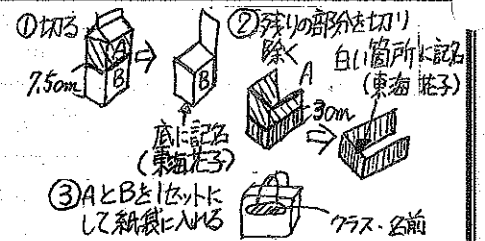 ①切る
A
B
7.5cm
B
底に記名
(東海花子)
②残りの部分を切り
除く
A
3cm
白い箇所に記名
(東海 花子)
③AとBを1セットに
して紙袋に入れる
クラス・名前